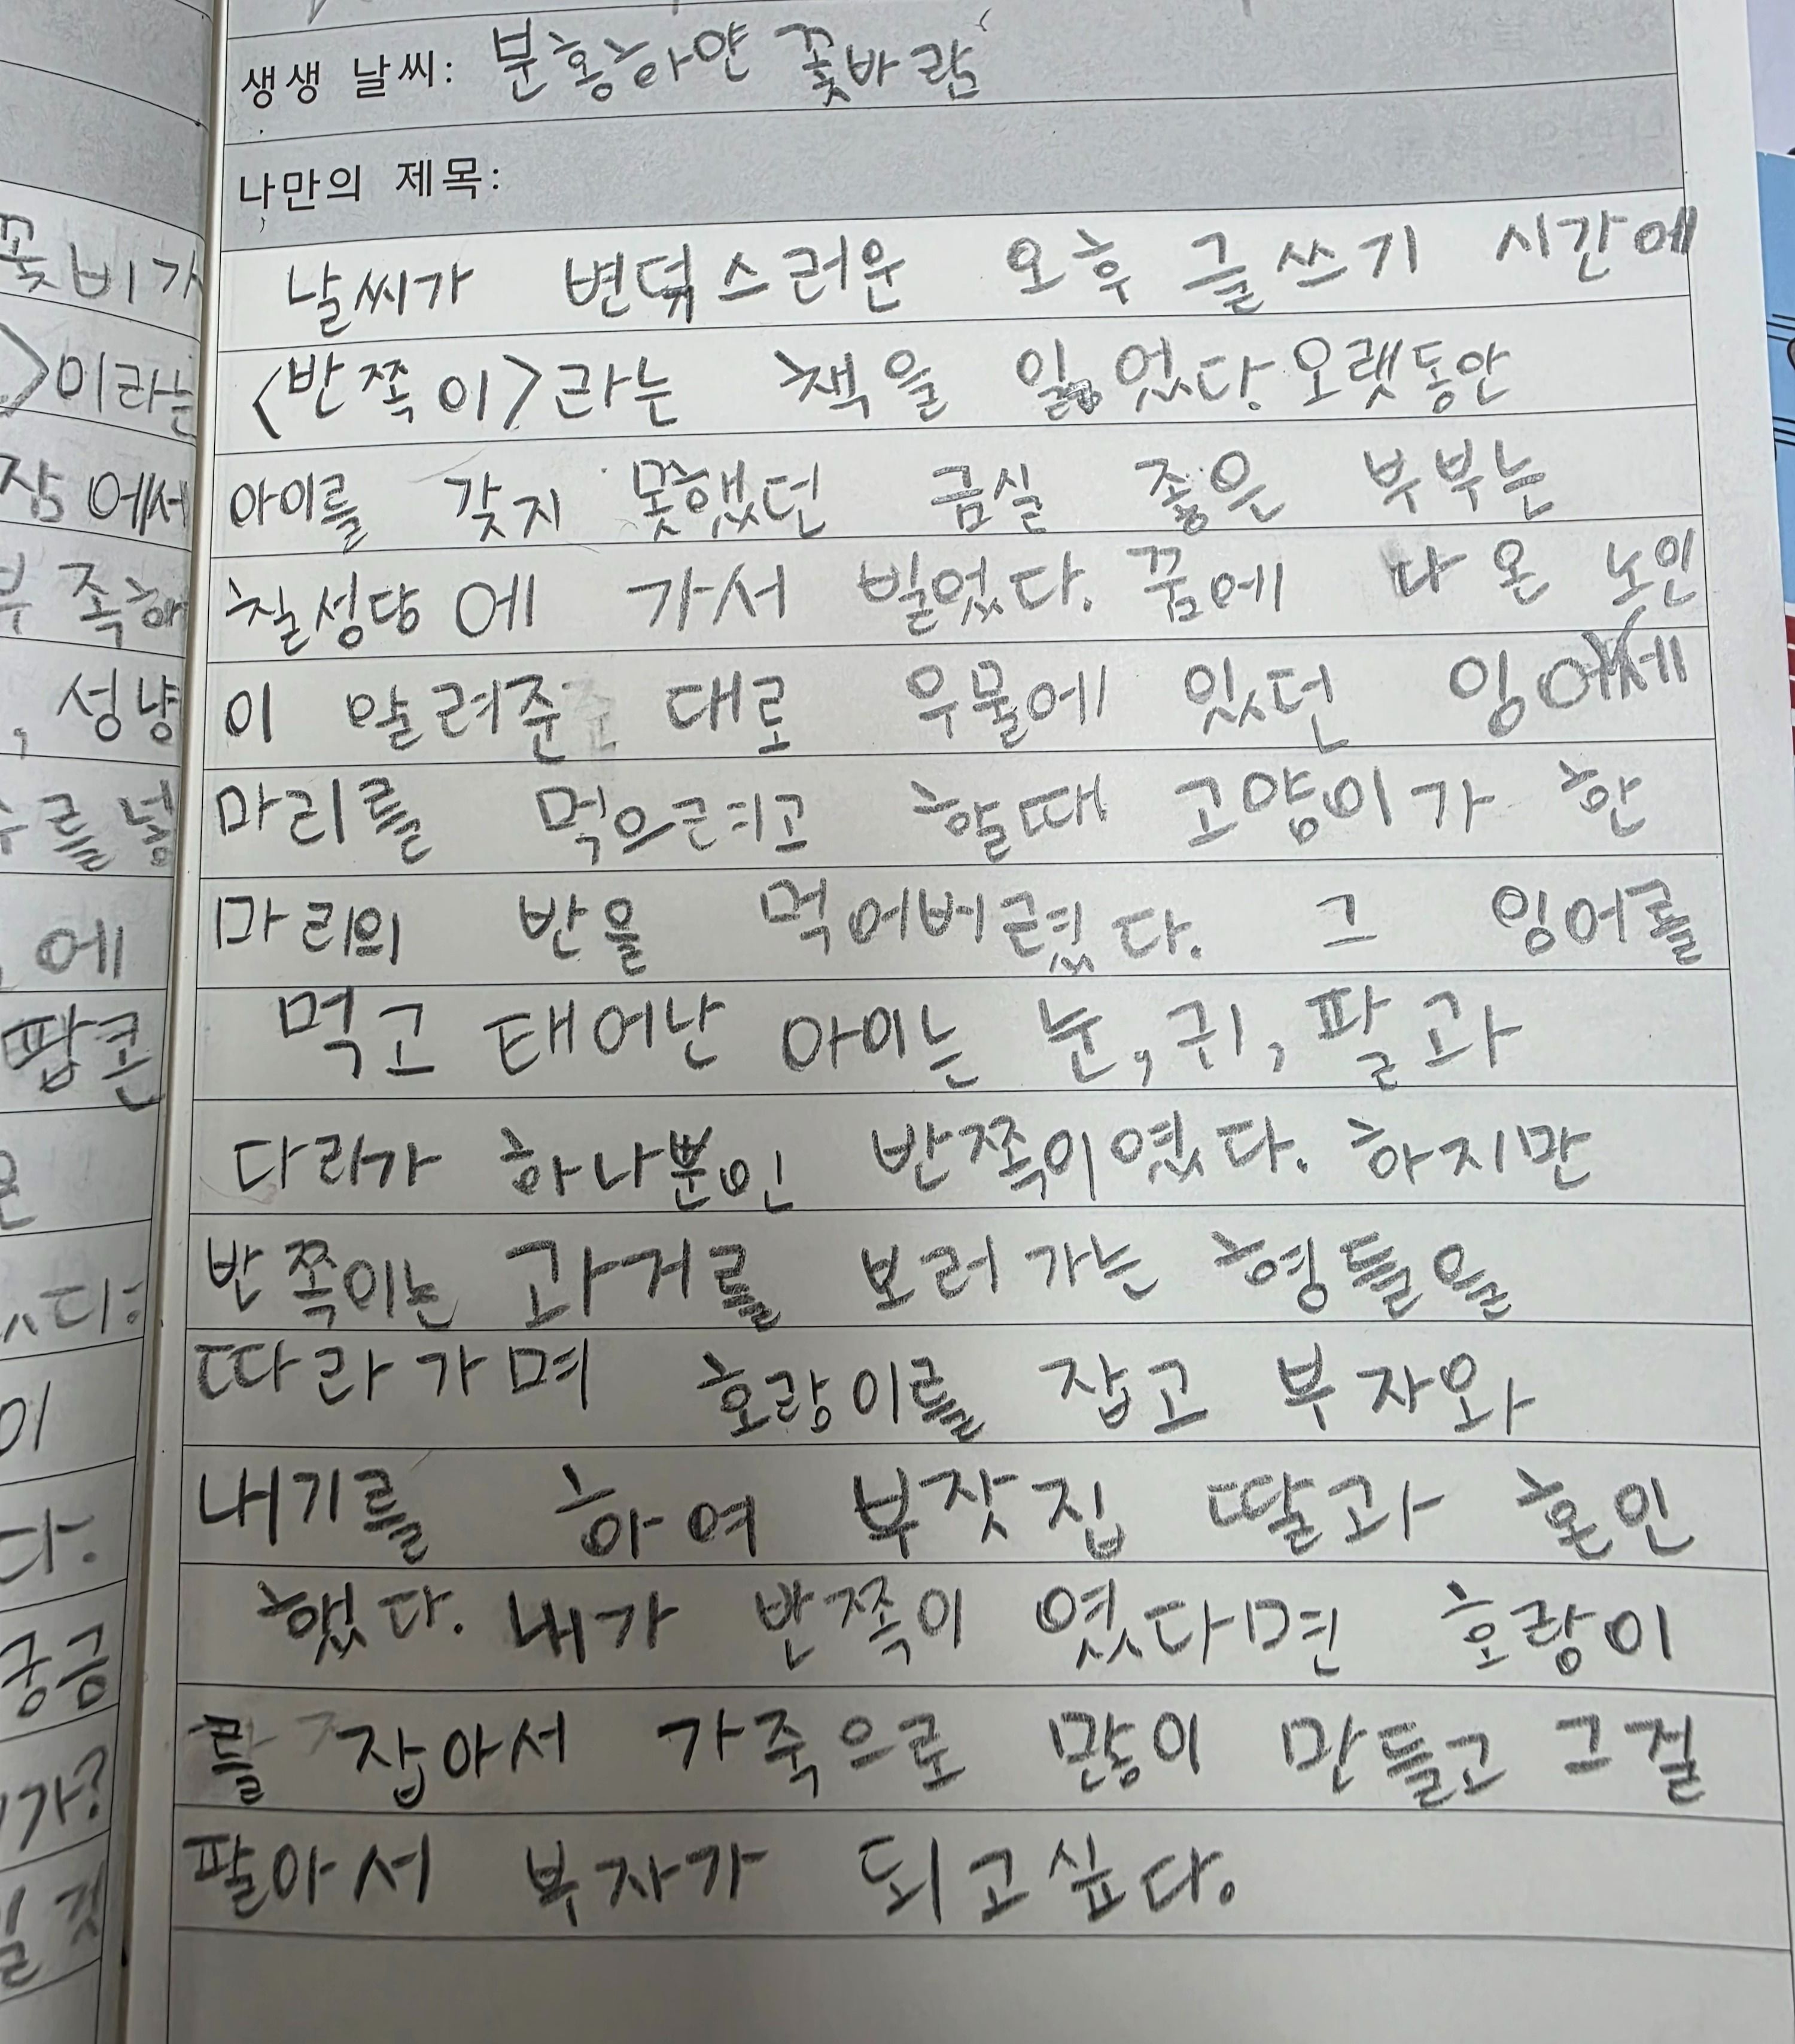 생생 날씨: 분홍하얀 꽃바람
나만의 제목:
날씨가 변덕스러운 오후 글쓰기 시간에
<반쪽이>라는 책을 읽었다. 오랫동안
아이를 갖지 못했던 금실 좋은 부부는
칠성당에 가서 빌었다. 꿈에 나온 노인
이 알려준 대로 우물에 있던 잉어세
마리를 먹으려고 할때 고양이가 한
마리의 반을 먹어버렸다. 그 잉어를
먹고 태어난 아이는 눈, 귀, 팔과
다리가 하나뿐인 반쪽이였다. 하지만
반쪽이는 과거를 보러가는 형들을
따라가며 호랑이를 잡고 부자와
내기를 하여 부잣집 딸과 혼인
했다. 내가 반쪽이 였다면 호랑이
를 잡아서 가죽으로 많이 만들고 그걸
팔아서 부자가 되고싶다.
꽃비가
>이라는
에서
부족해
, 성냥
를 넣
에
팝콘
이
다.
궁금
가?